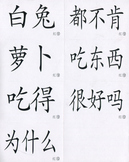 白兔
都不肯
萝卜
吃东西
吃得
很好吗
为什么